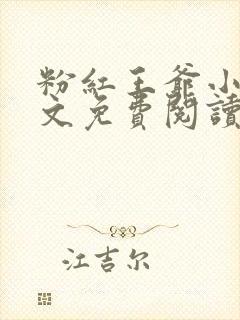 粉紅王爺小
文免費閱讀
江吉尔